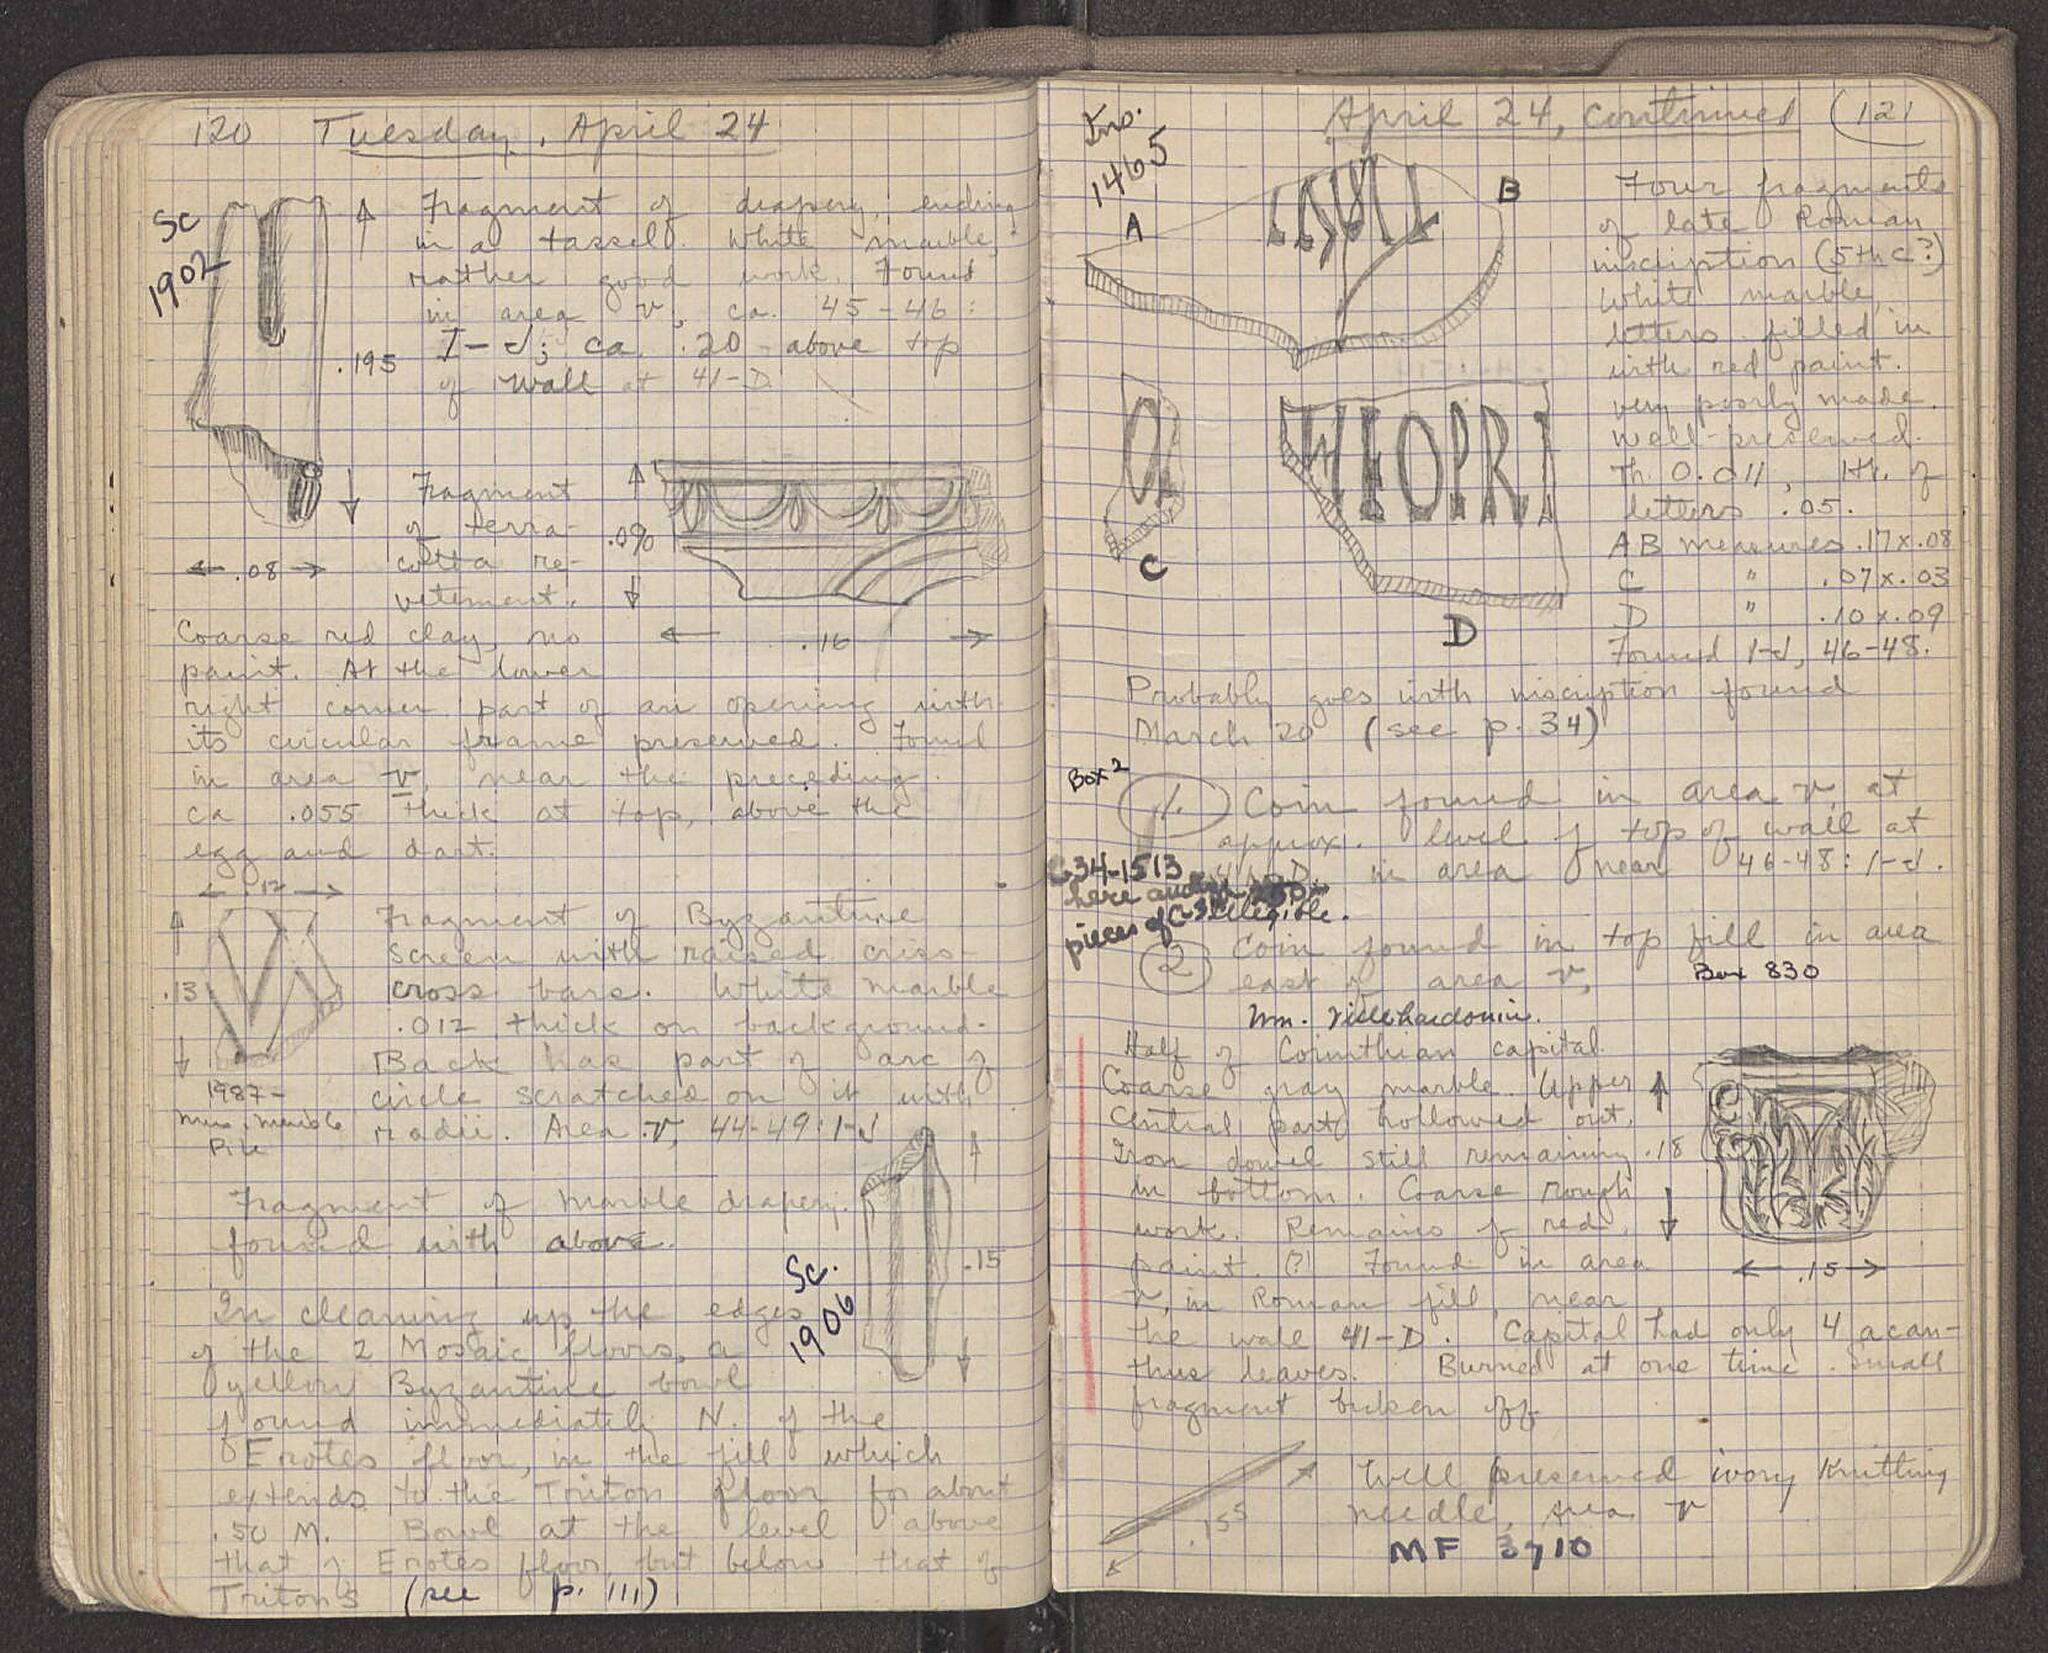 120 Tuesday, April 24
Sc
1902
Fragment of drapery, ending
in a tassel. White marble,
rather good work. Found
in area v, ca. 45-46:
I-J; ca. .20 above top
of wall at 41-D.
.195
.08
Fragment
of terra-
cotta re-
vetement.
.090
.16
Coarse red clay, no
paint. At the lower
right corner part of an opening with
its circular frame preserved. Found
in area v, near the preceding.
ca .055 thick at top, above the
egg and dart.
.12
.13
Fragment of Byzantine
screen with raised criss-
cross bars. White marble
.012 thick on background.
Back has part of arc of
circle scratched on it with
radii. Area v, 44-49: I-J
1987-
Mus. Marble
Pile
Fragment of marble drapery.
found with above.
Sc.
1906
.15
In cleaning up the edges
of the 2 Mosaic floors, a
yellow Byzantine bowl
found immediately N. of the
Erotes floor, in the fill which
extends to the Triton floor for about
.50 M. Bowl at the level above
that of Erotes floor, but below that of
Tritons (see p. 111)
April 24, continued 121
Ins.
1465
A
B
C
D
WFOPRI
Four fragments
of late Roman
inscription (5th c?)
White marble,
letters filled in
with red paint.
very poorly made.
well-preserved.
Th. 0.011, Ht. of
letters .05.
AB measures .17x.08
C " .07x.03
D " .10x.09
Found I-J, 46-48.
Probably goes with inscription found
March 20 (see p. 34)
Box 2
1. Coin found in area v, at
approx. level of top of wall at
41-D. in area near 46-48: I-J.
C34-1513
here
pieces of illegible.
2 Coin found in top fill in area
east of area v,
Box 830
Wm. Villehardouin.
Half of Corinthian capital.
Coarse gray marble. Upper
central part hollowed out.
Iron dowel still remaining
in bottom. Coarse rough
work. Remains of red
paint. (?) Found in area
v, in Roman fill, near
the wall 41-D. Capital had only 4 acan-
thus leaves. Burned at one time. Small
fragment broken off
.18
.15
.155
Well preserved ivory Knitting
needle, area v
MF 3710